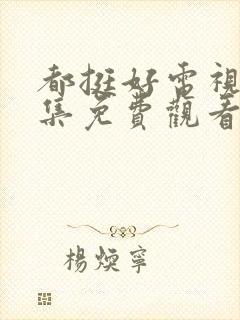 都挺好電視
集免費觀看
楊煐寧